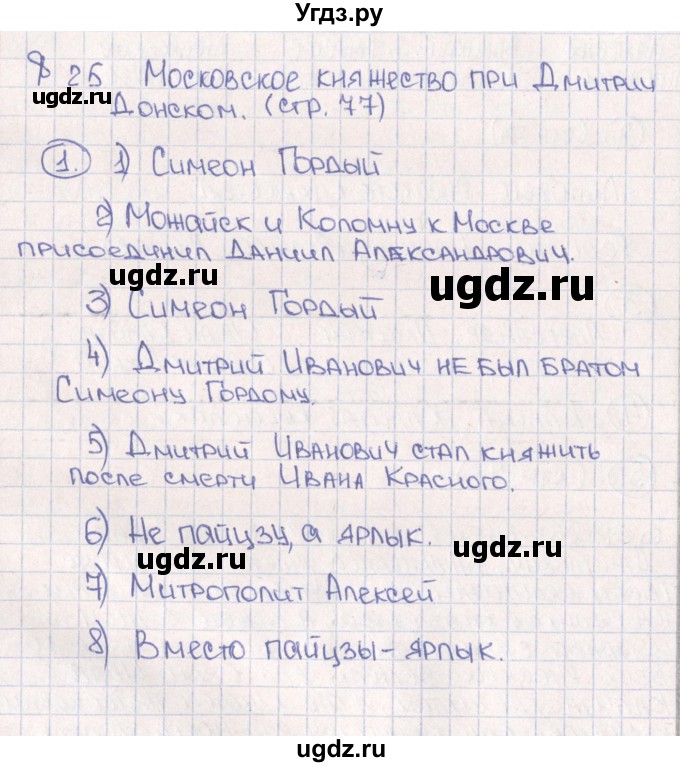 Угдз.ру
§ 25 Московское княжество при Дмитрии
ugdz.ru Донском. (стр. 77) ugdz.ru
1. 1) Симеон Гордый
2) Можайск и Коломну к Москве
присоединил Даниил Александрович.
ugdz.ru ugdz.ru
3) Симеон Гордый
4) Дмитрий Иванович не был братом
Симеону Гордому.
ugdz.ru ugdz.ru
5) Дмитрий Иванович стал княжить
после смерти Ивана Красного.
6) Не пайцзу, а ярлык.
ugdz.ru ugdz.ru
7) Митрополит Алексей
8) Вместо пайцзы - ярлык.
ugdz.ru ugdz.ru
ugdz.ru